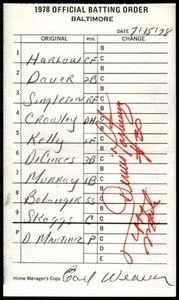 1978 OFFICIAL BATTING ORDER
BALTIMORE
DATE 7/15/78
ORIGINAL POS. CHANGE
1 Harlow CF B
C
2 Dauer 2B B
C
3 Singleton RF B
C
4 Crowley DH B
C
5 Kelly LF B
C
6 DeCinces 3B B
C
7 Murray 1B B
C
8 Belanger SS B
C
9 Skaggs C B
C
P D. Martinez P C
D
E
Home Manager's Copy Earl Weaver